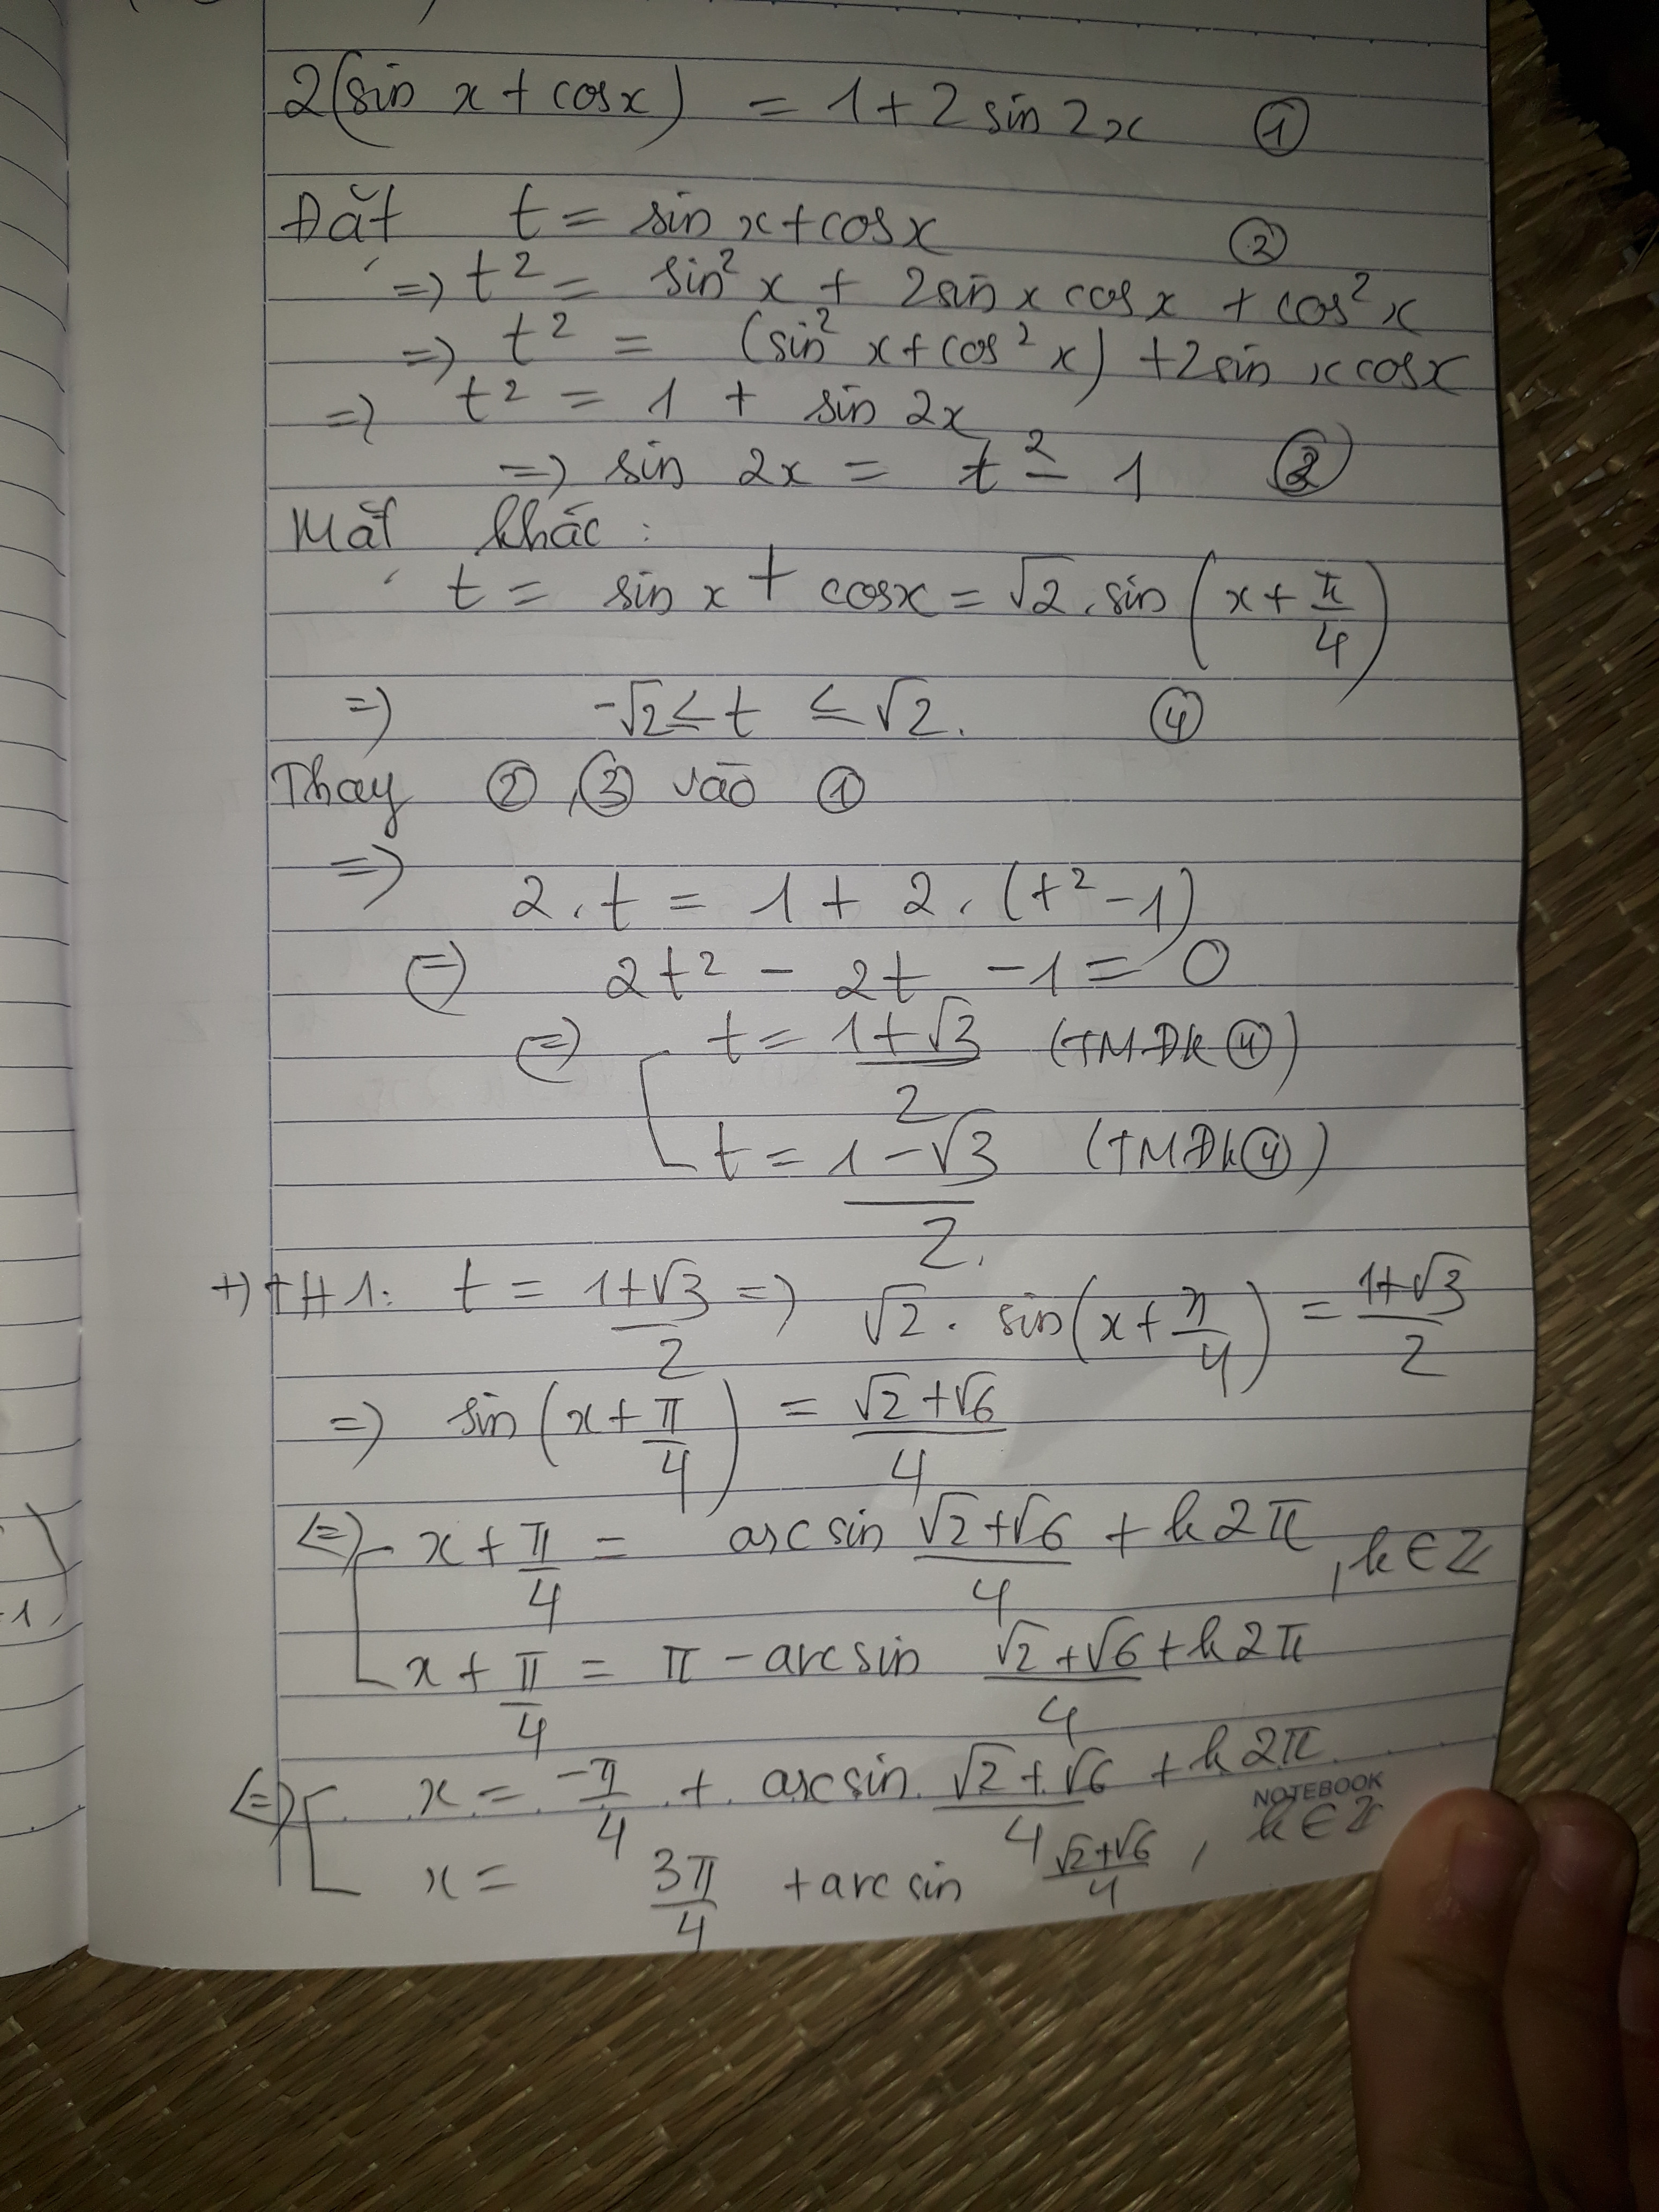 2(sin x + cosx) = 1 + 2 sin 2x ①
Đặt t = sin x + cosx ②
=) t² = sin² x + 2sin x cosx + cos² x
=) t² = (sin² x + cos² x) + 2sin x cosx
=) t² = 1 + sin 2x
=) sin 2x = t² - 1 ③
Mặt khác :
t = sin x + cosx = √2 . sin (x + π/4)
=) -√2 ≤ t ≤ √2. ④
Thay ②, ③ vào ①
=)
2 . t = 1 + 2 . (t² - 1)
(=) 2t² - 2t - 1 = 0
(=) [ t = (1+√3)/2 (TMĐK ④)
t = (1-√3)/2. (TMĐK ④)
+) TH1: t = (1+√3)/2 =) √2 . sin(x + π/4) = (1+√3)/2
=) sin(x + π/4) = (√2+√6)/4
(=) [ x + π/4 = arcsin (√2+√6)/4 + k2π , k∈Z
x + π/4 = π - arcsin (√2+√6)/4 + k2π
(=) [ x = -π/4 + arcsin (√2+√6)/4 + k2π
NOTEBOOK
x = 3π/4 + arcsin (√2+√6)/4 , k∈Z